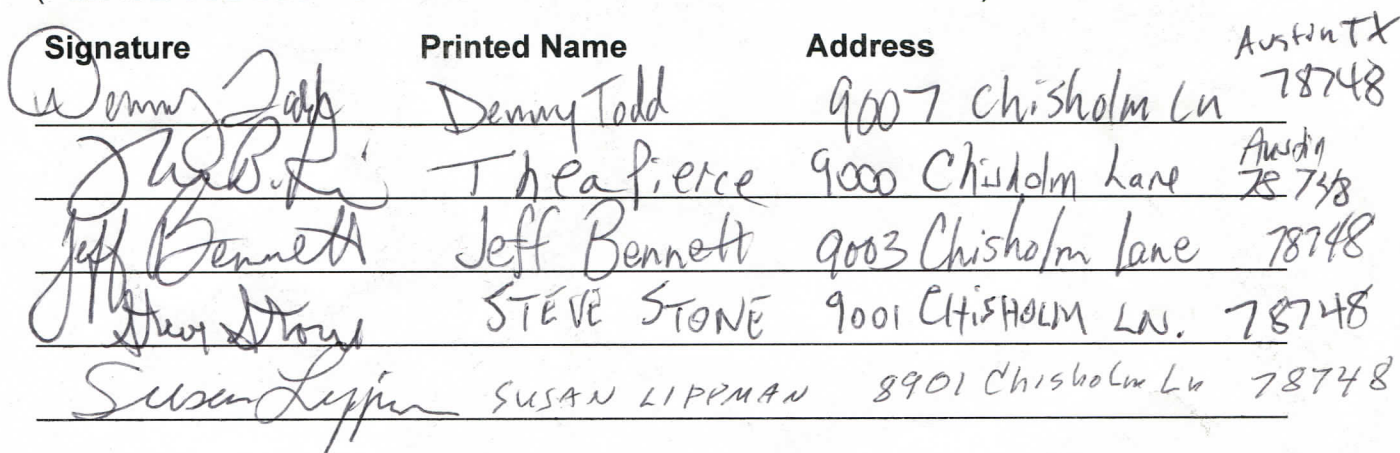 Signature Printed Name Address Austin TX
Denny Todd Denny Todd 9007 Chisholm Ln 78748
Thea Pierce 9000 Chisholm Lane Austin 78748
Jeff Bennett Jeff Bennett 9003 Chisholm Lane 78748
Steve Stone STEVE STONE 9001 CHISHOLM LN. 78748
Susan Lippman SUSAN LIPPMAN 8901 Chisholm Ln 78748